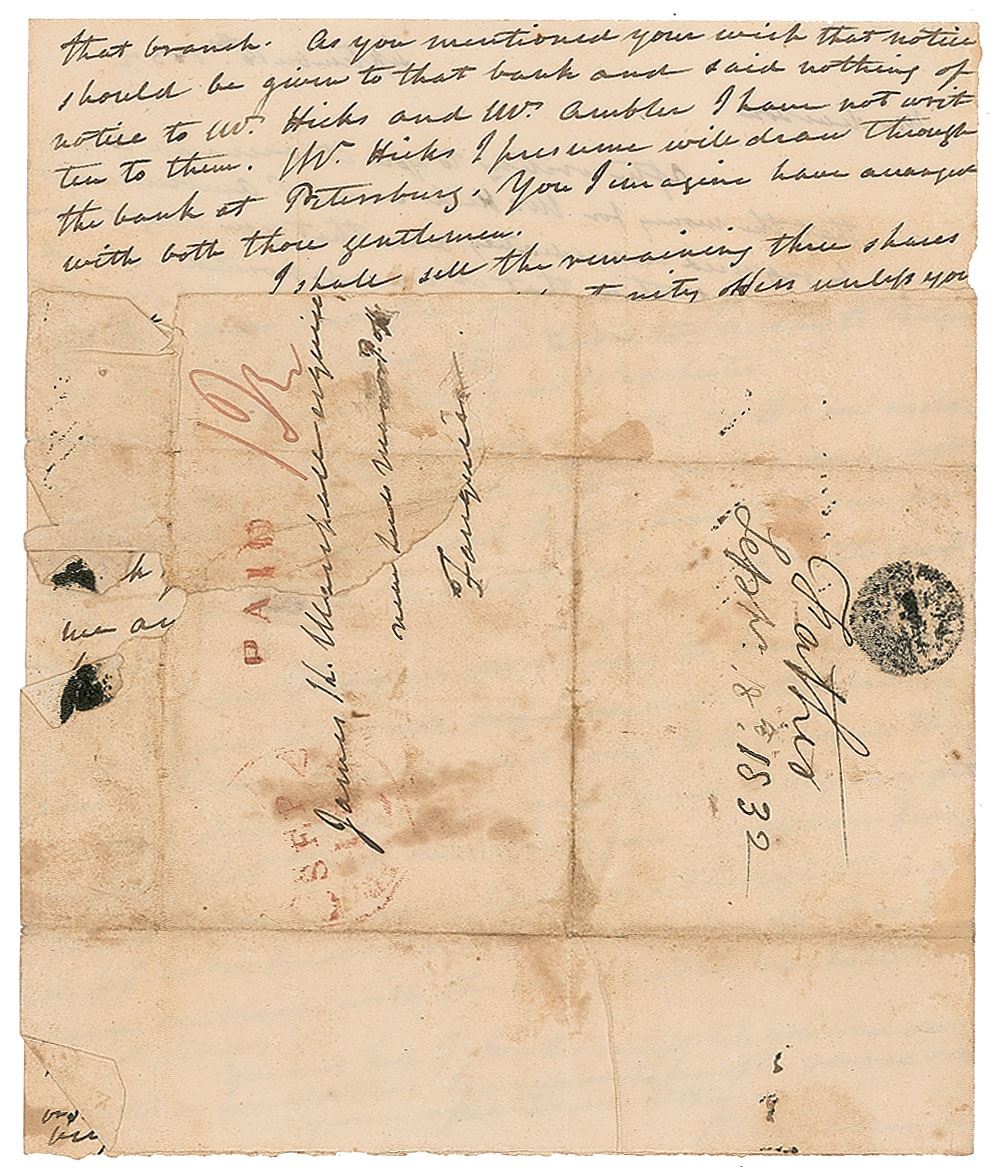 that branch. As you mentioned your wish that notice
should be given to that bank and said nothing of
notice to Mr. Hicks and Mr. Ambler I have not writ
ten to them. Mr. Hicks I presume will draw through
the bank at Petersburg. You I imagine have arranged
with both those gentlemen.
I shall sell the remaining three shares
unless you
PAID
James K. Marshall esquire
near
Fauquier
SEP
Father
Septr. 18th 1832